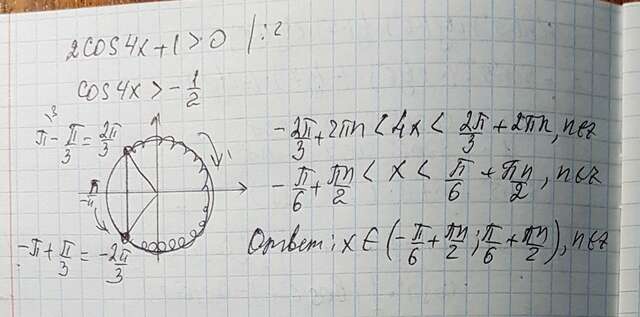 2cos4x+1>0 /:2
cos4x>-1/2
π-π/3=2π/3
π
-π
-π+π/3=-2π/3
-2π/3+2πn<4x<2π/3+2πn, n∈z
-π/6+πn/2<x<π/6+πn/2, n∈z
Ответ: x∈(-π/6+πn/2; π/6+πn/2), n∈z